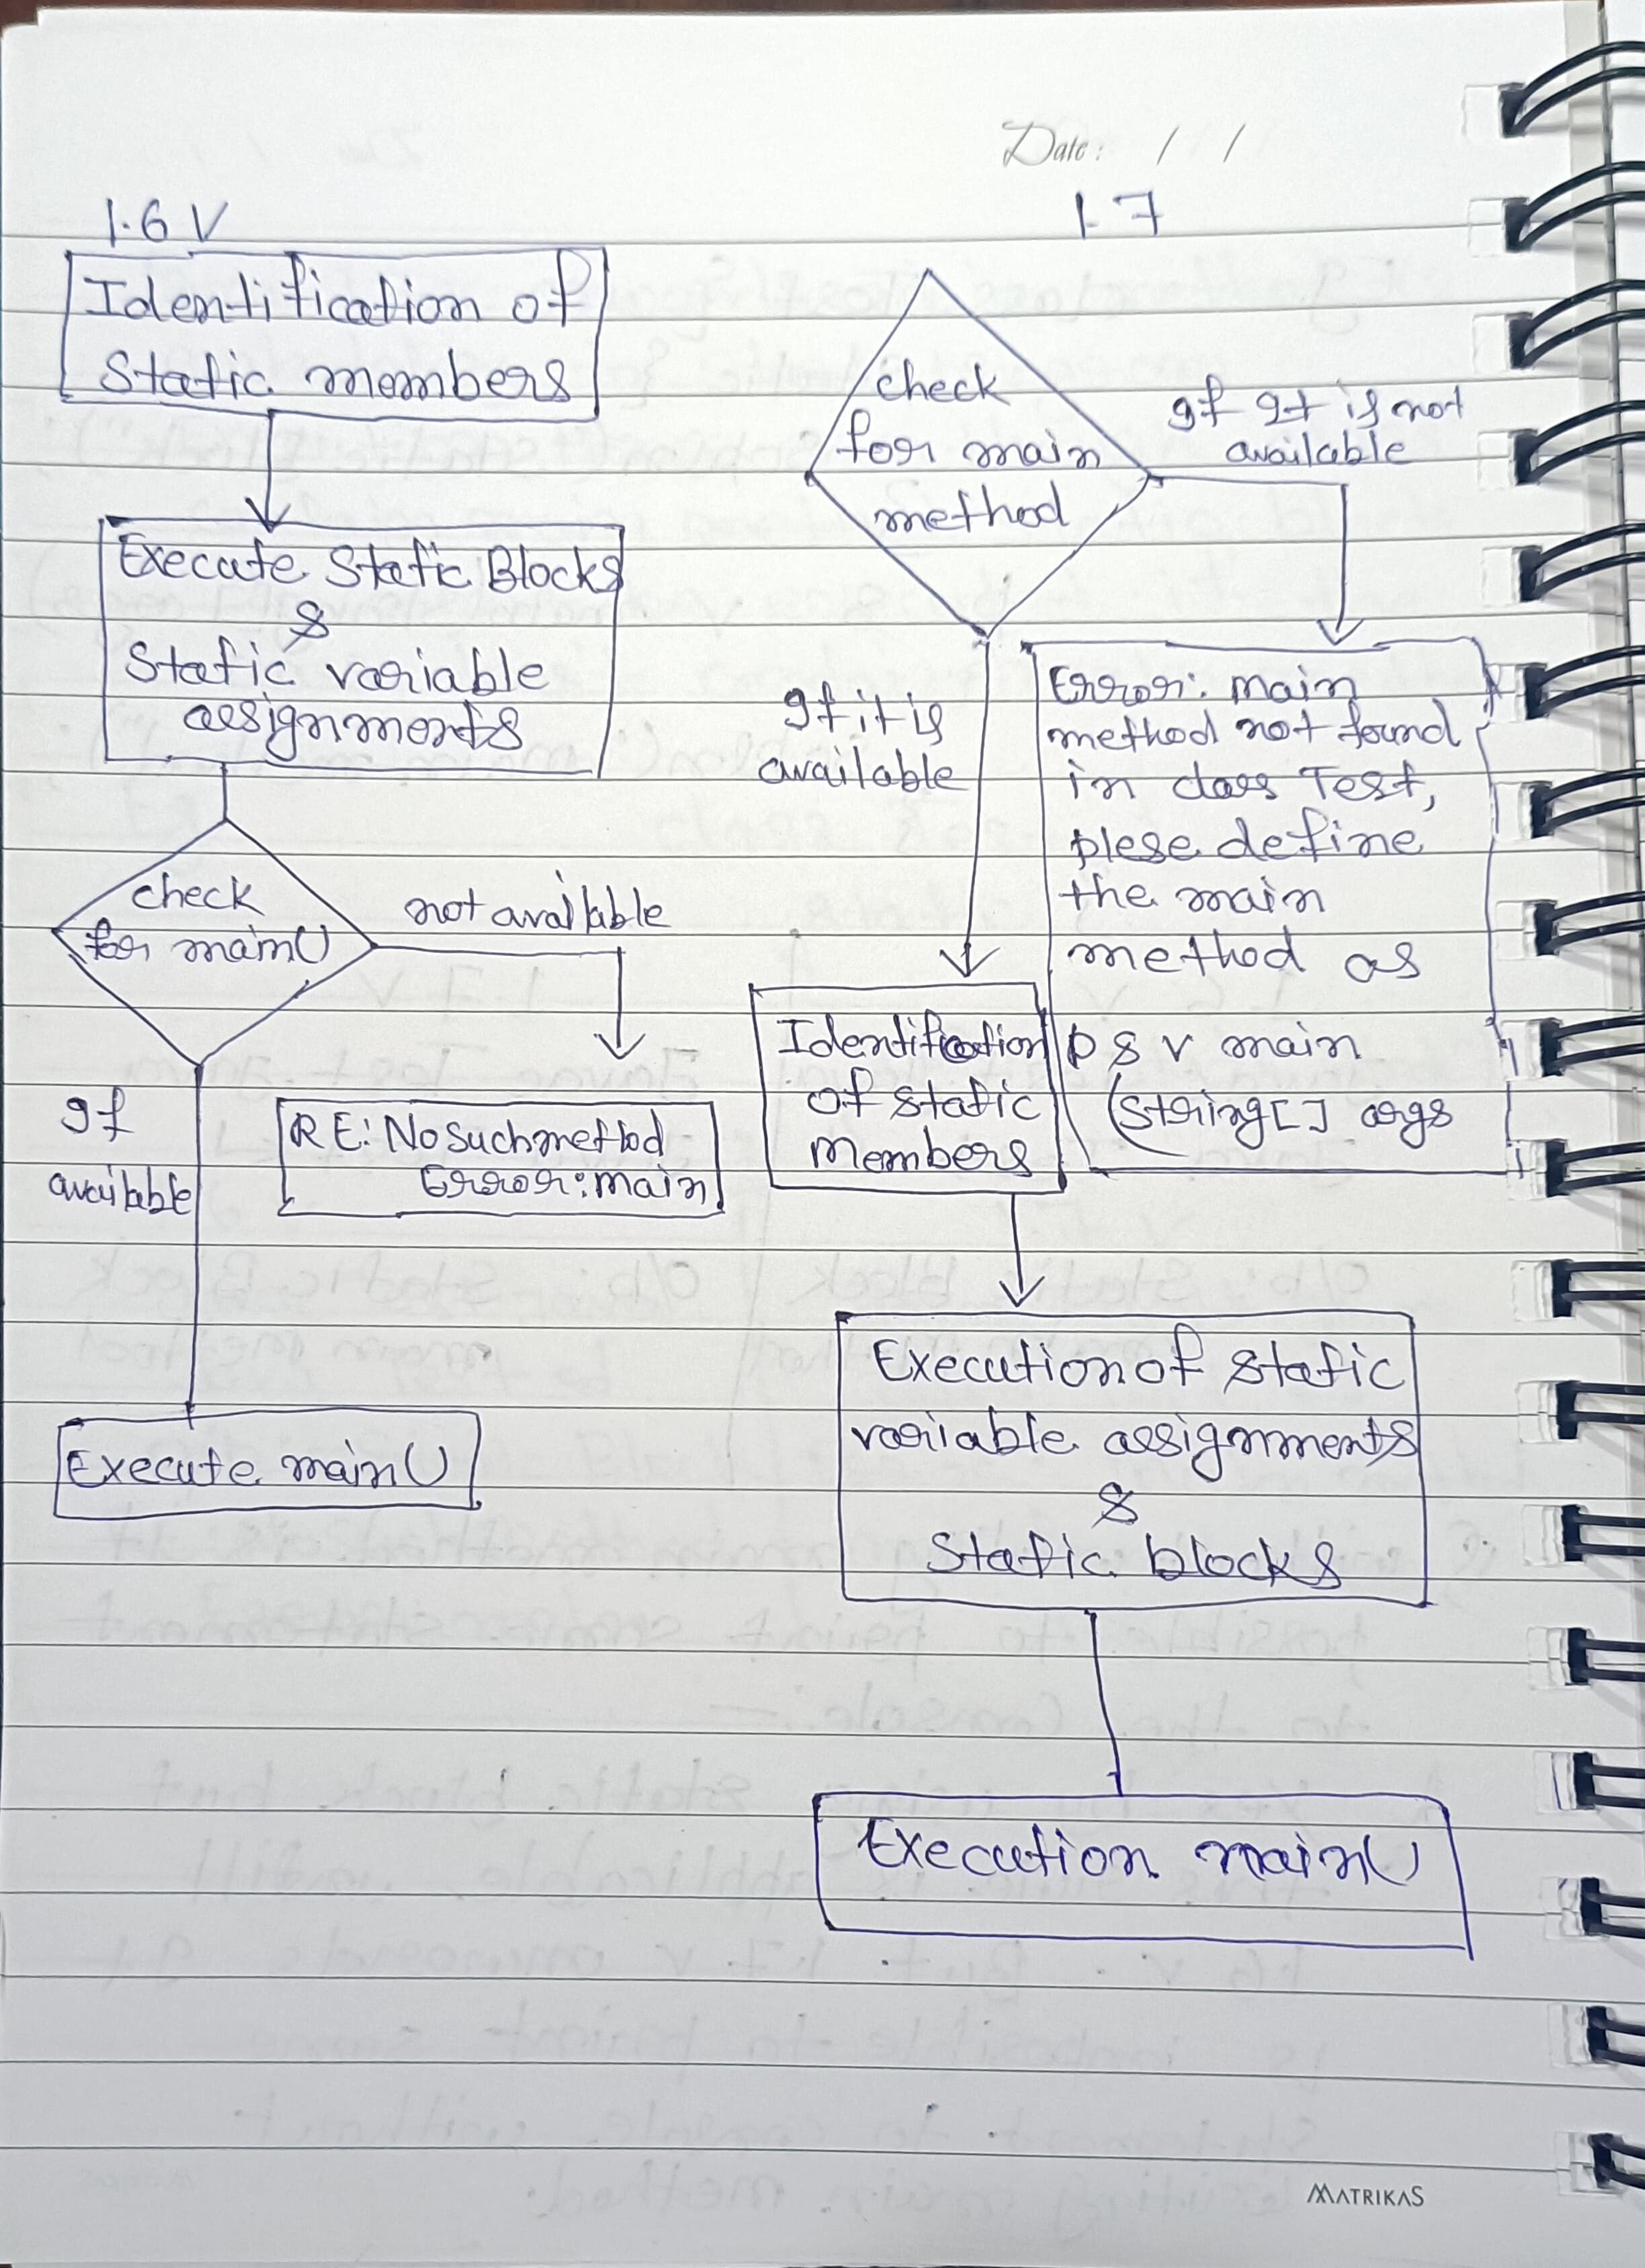 Date: / /
1.6 V
Identification of
Static members
Execute Static Blocks
&
Static variable
assignments
check
for main()
not available
If
available
RE: Nosuchmethod
Error: main
Execute main()
1.7
check
for main
method
If It is not
available
If it is
available
Error: main
method not found
in class Test,
plese define
the main
method as
p s v main
(String[] args
Identification
of static
members
Execution of static
variable assignments
&
Static blocks
Execution main()
MATRIKAS